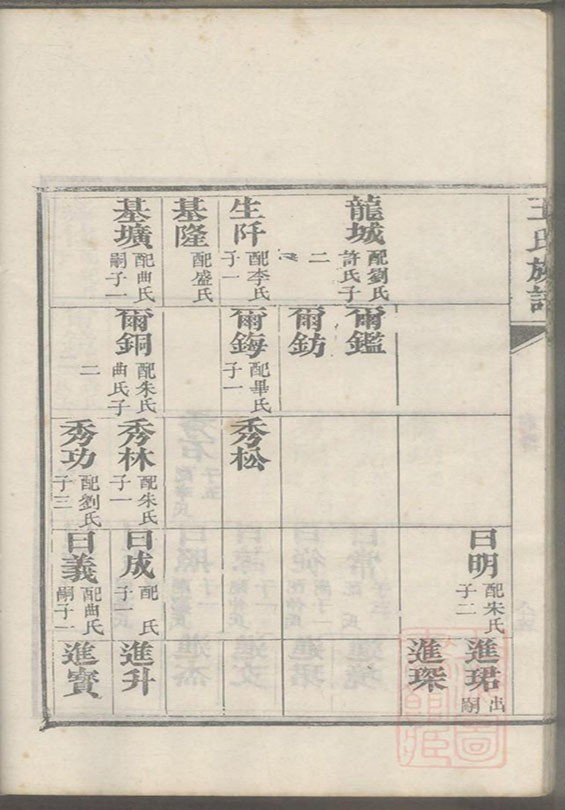 王氏族譜
龍城 配劉氏許氏子二
生阡 配李氏子一
基隆 配盛氏
基壙 配曲氏嗣子一
爾鑑
爾鈁
爾鋂 配畢氏子一
爾銅 配朱氏曲氏子二
秀松
秀林 配朱氏子一
秀功 配劉氏子三
曰明 配朱氏子二
曰成 配 氏子一
曰義 配曲氏嗣子一
進珺 出嗣
進琛
進升
進寳